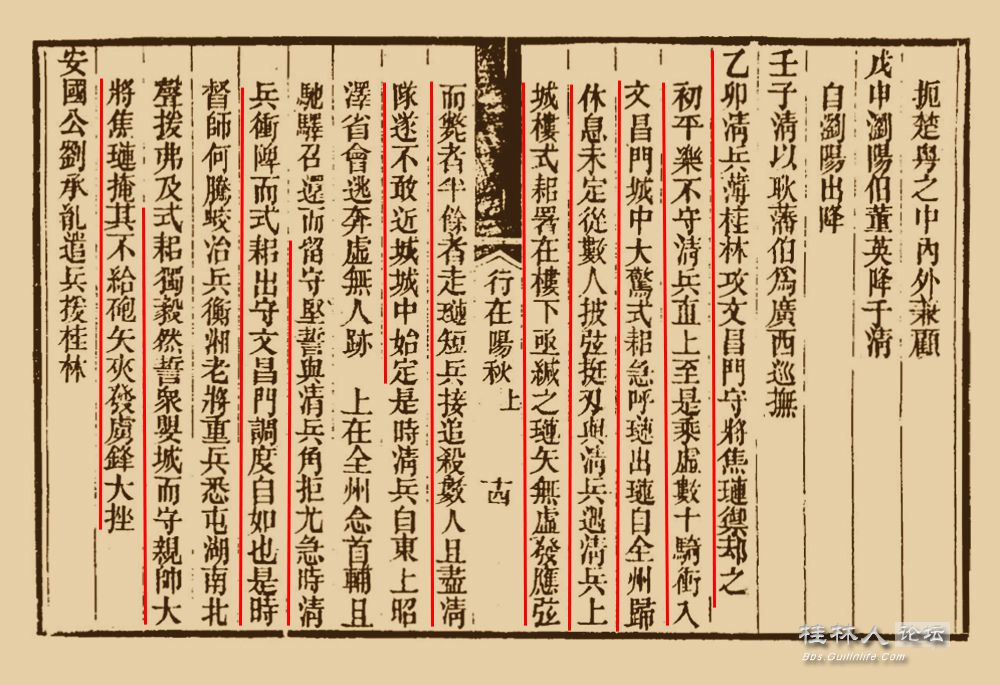 扼楚粤之中內外兼顧
戊申瀏陽伯董英降于清
自瀏陽出降
壬子清以耿藩伯爲廣西巡撫
乙卯清兵薄桂林攻文昌門守將焦璉禦却之
初平樂不守清兵直上至是乘虛數十騎衝入
文昌門城中大驚式耜急呼璉出璉自全州歸
休息未定從數人披弦挺刃與清兵遇清兵上
城樓式耜署在樓下亟緘之璉矢無虛發應弦
行在陽秋 上 十四
而斃者半餘者走璉短兵接追殺數人且盡清
隊遂不敢近城城中始定是時清兵自東上昭
澤省會逃奔虛無人跡 上在全州念首輔且
馳驛召還而留守堅誓與清兵角拒尤急時清
兵衝陴而式耜出守文昌門調度自如也是時
督師何騰蛟治兵衡湘老將重兵悉屯湖南北
聲援弗及式耜獨毅然誓衆嬰城而守親帥大
將焦璉掩其不給砲矢夾發虜鋒大挫
安國公劉承胤遣兵援桂林
桂林人论坛
Bbs.Guilinlife.com